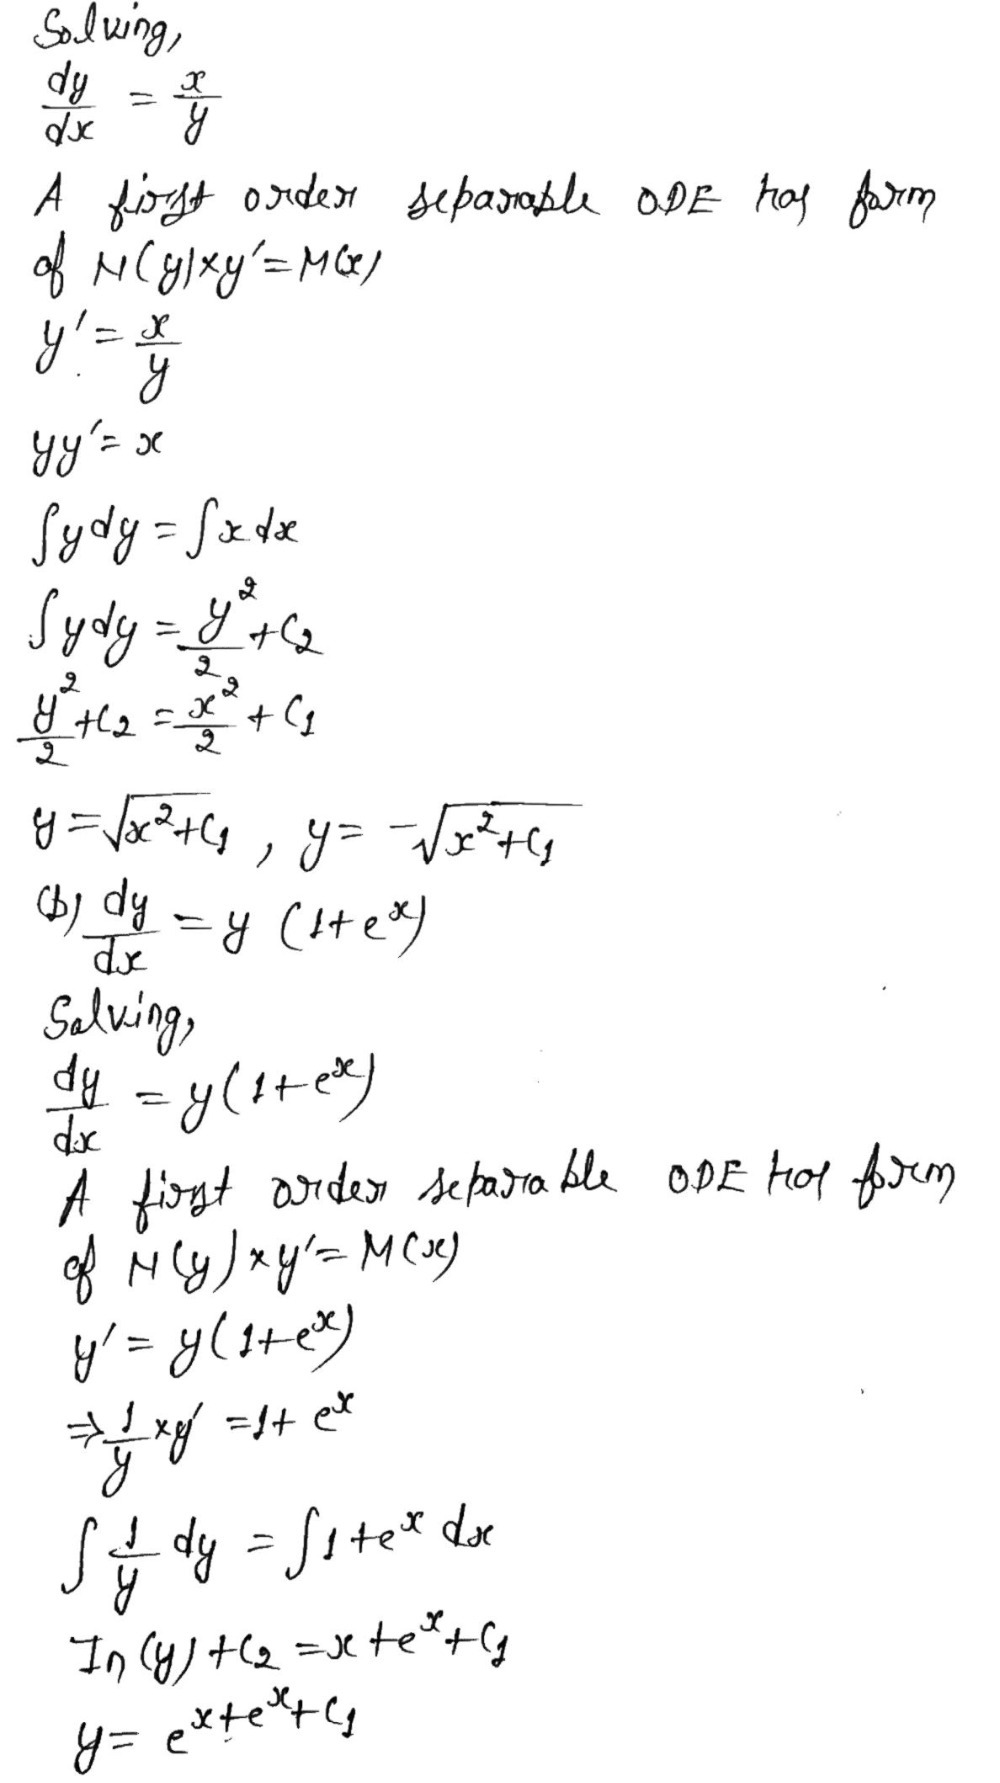 Solving,
dy/dx = x/y
A first order separable ODE has form
of N(y)×y' = M(x)
y' = x/y
yy' = x
∫ydy = ∫x dx
∫ydy = y²/2 + C₂
y²/2 + C₂ = x²/2 + C₁
y = √(x²+C₁) , y = -√(x²+C₁)
(b) dy/dx = y (1+eˣ)
Solving,
dy/dx = y(1+eˣ)
A first order separable ODE has form
of N(y)×y' = M(x)
y' = y(1+eˣ)
⇒ 1/y × y' = 1 + eˣ
∫ 1/y dy = ∫1+eˣ dx
In (y) + C₂ = x + eˣ + C₁
y = e^(x+eˣ+C₁)